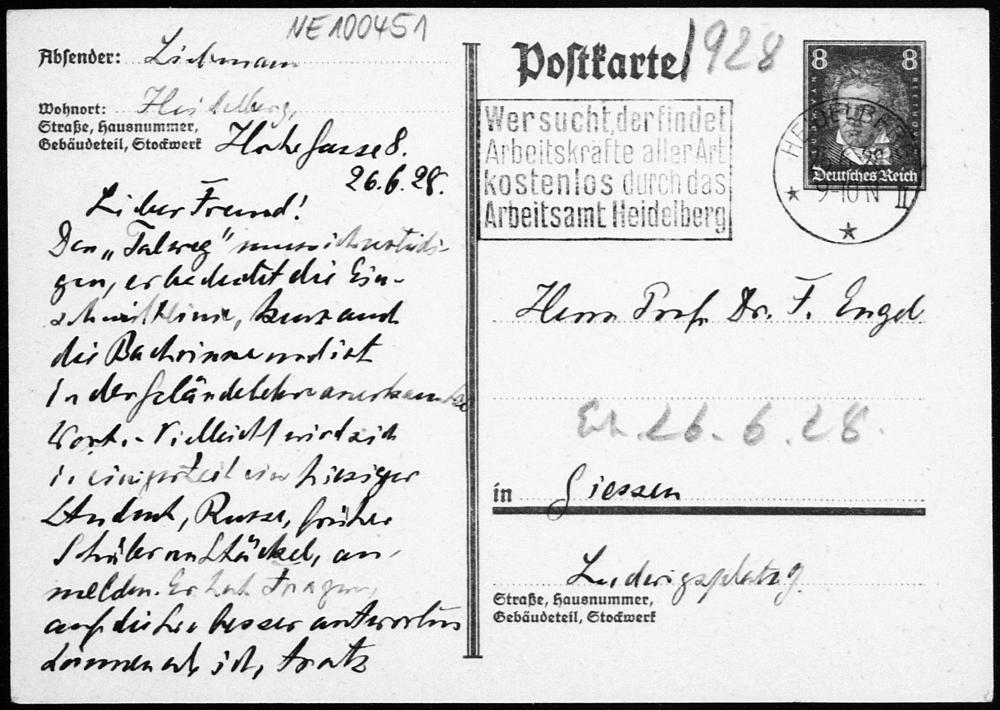 NE100451
Absender: Liebmann
Wohnort: Heidelberg,
Straße, Hausnummer,
Gebäudeteil, Stockwerk
Hohe Gasse 8.
26.6.28.
Lieber Freund!
Den „Talweg" muss ich verteidi-
gen, er bedeutet die Ein-
schnittlinie, kurz auch
die Bachrinne und ist
in der Geländelehre anerkanntes
Wort. - Vielleicht wird sich
in einiger Zeit ein hiesiger
Student, Russe, früher
Schüler von Stäckel, an-
melden. Er hat Fragen,
auf die Sie besser antworten
können als ich, trotz
Postkarte
1928
8 8
Deutsches Reich
HEIDELBERG
9-10 N
II
Wer sucht, der findet
Arbeitskräfte aller Art
kostenlos durch das
Arbeitsamt Heidelberg
Herrn Prof. Dr. F. Engel
26.6.28.
in Giessen
Ludwigsplatz 9.
Straße, Hausnummer,
Gebäudeteil, Stockwerk